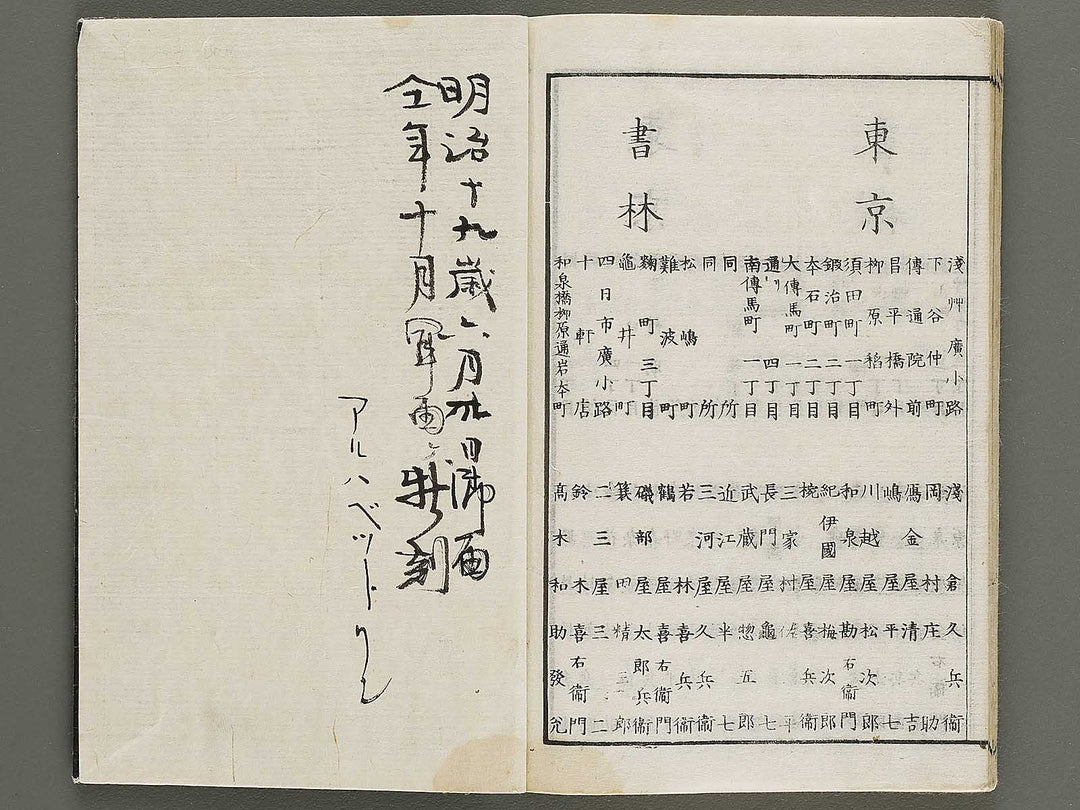 東京
書林
淺艸廣小路 淺倉久兵衞
下谷仲町 岡村庄助
傳通院前 鴈金屋清吉
昌平橋外 嶋屋平七
柳原稻町 川越屋松次郎
須田町一丁目 和泉屋勘右衞門
鍛治町二丁目 紀伊國屋梅次郎
夲石町二丁目 椀屋喜兵衞
大傳馬町一丁目 三家村佐平
通リ四丁目 長門屋龜七
南傳馬町一丁目 武蔵屋惣五郎
同所 近江屋半七
同所 三河屋久兵衞
松嶋町 若林喜兵衞
難波町 鶴屋喜右衞門
麹町三丁目 磯部屋太郎兵衞
龜井町 箕田精三郎
四日市廣小路 二三屋三二
十軒店 鈴木喜右衞門
和泉橋栁原通岩夲町 髙木和助發兌
明治十九歳六月廿九日
仝年十月
アルハベット